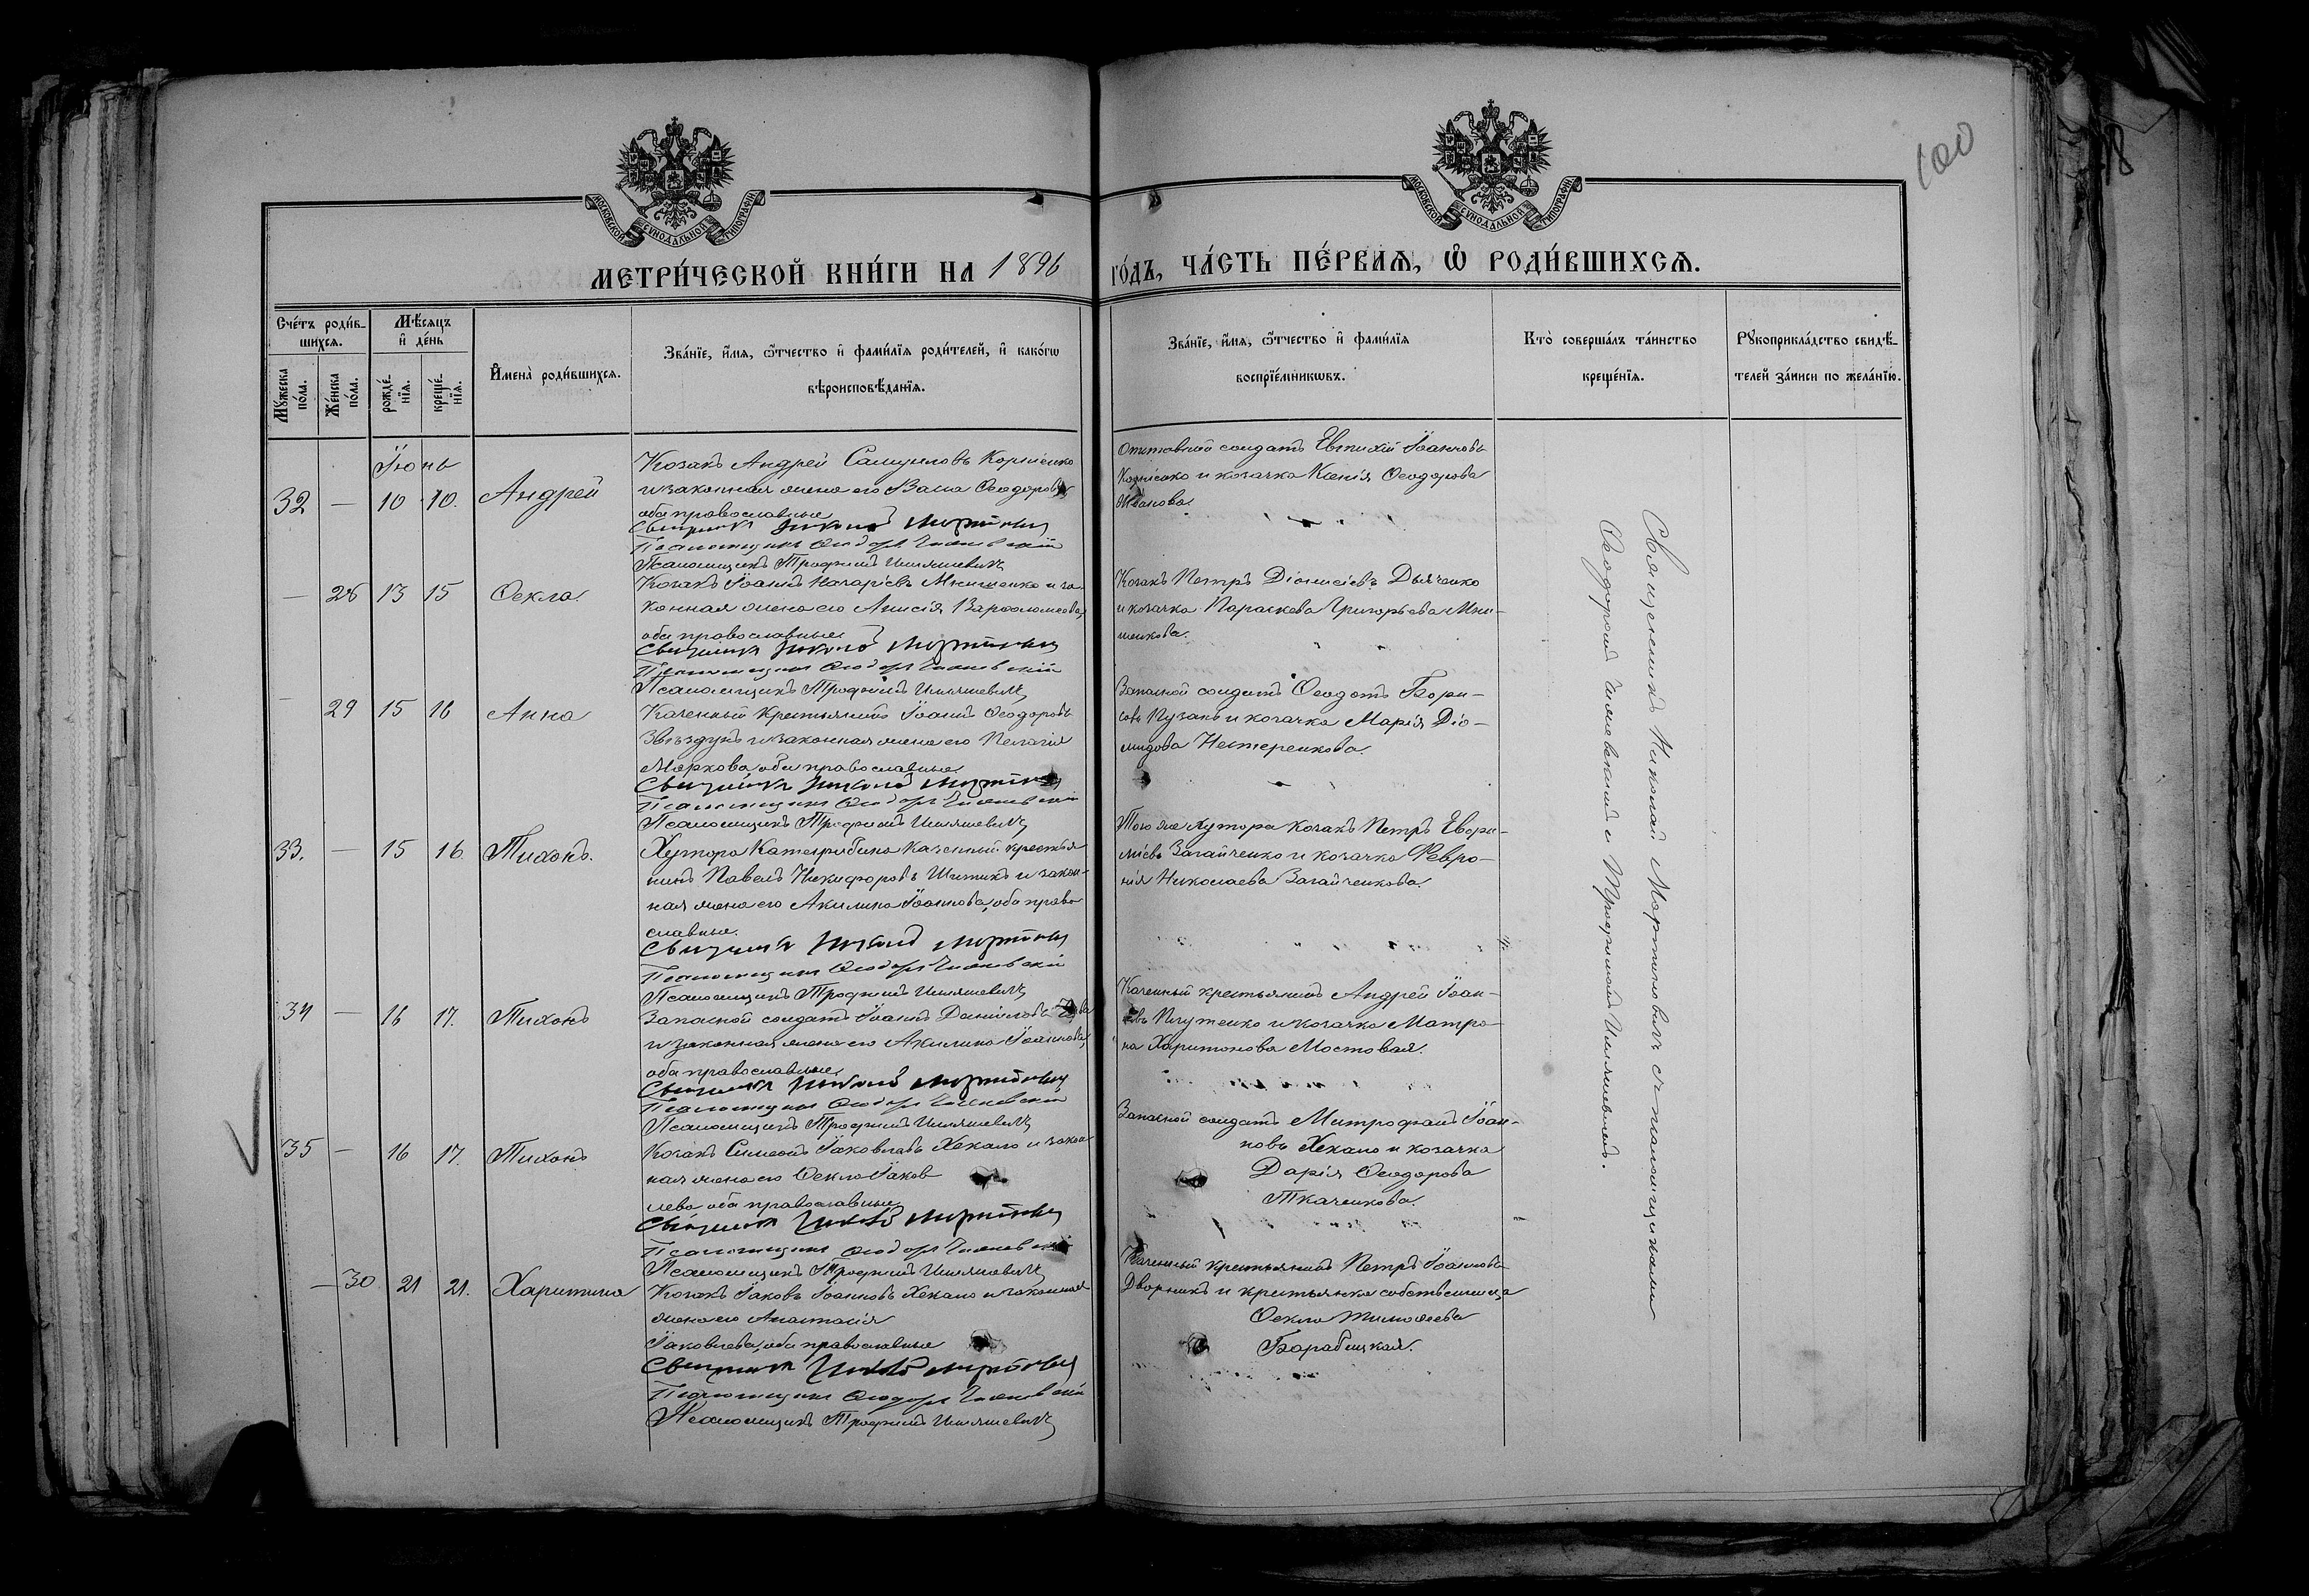 100
18
МОСКОВСКОЙ СѴНОДАЛЬНОЙ ТИПОГРАФІИ
МОСКОВСКОЙ СѴНОДАЛЬНОЙ ТИПОГРАФІИ
МЕТРИ́ЧЕСКОЙ КНИ́ГИ НА 1896
ГО́ДЪ, ЧА́СТЬ ПЕ́РВАѦ, Ѽ РОДИ́ВШИХСѦ.
Сче́тъ роди́в-
шихсѧ.
Мꙋ́жеска по́ла.
Же́нска по́ла.
Мѣ́сѧцъ
и҆ де́нь
рожде́-
нїѧ.
креще́-
нїѧ.
И҆мена̀ роди́вшихсѧ.
Зва́нїе, и҆́мѧ, ѻ҆́тчество и҆ фами́лїѧ роди́телей, и҆ како́гѡ
вѣроисповѣ́данїѧ.
Зва́нїе, и҆́мѧ, ѻ҆́тчество и҆ фами́лїѧ
воспрїе́мникѡвъ.
Кто̀ соверша́лъ та́инство
креще́нїѧ.
Рꙋкоприкла́дство свидѣ́-
телей за́писи по жела́нїю.
Іюнь
32 — 10 10. Андрей
Козакъ Андрей Самуиловъ Корніенко
и законная жена его Васса Ѳеодорова,
оба православные
Священникъ Николай Мартиновичъ
Псаломщикъ Ѳеодоръ
Псаломщикъ Трофимъ Илляшевичъ
солдатъ Евтихій Іоанновъ
Корніенко и козачка Ксенія Ѳеодорова
— 28 13 15 Ѳекла.
Козакъ Іоаннъ Назаріевъ Мнишенко и за-
конная жена его Анисія Варѳоломеева,
оба православные
Священникъ Николай Мартиновичъ
Псаломщикъ Ѳеодоръ
Псаломщикъ Трофимъ Илляшевичъ
Козакъ Петръ Діонисіевъ Дьяченко
и козачка Параскева Григорьева Мни-
шенкова.
— 29 15 16 Анна
Казенный крестьянинъ Іоаннъ Ѳеодоровъ
Звѣздунъ и законная жена его Пелагія
Маркова, оба православные
Священникъ Николай Мартиновичъ
Псаломщикъ Ѳеодоръ
Псаломщикъ Трофимъ Илляшевичъ
Запасной солдатъ Ѳеодотъ Бори-
совъ Пузанъ и козачка Марія Діо-
мидова Нестеренкова.
33. — 15 16. Тихонъ.
Хутора казенный крестья-
нинъ Павелъ Никифоровъ и закон-
ная жена его Акилина Іоаннова, оба право
славные.
Священникъ Николай Мартиновичъ
Псаломщикъ Ѳеодоръ
Псаломщикъ Трофимъ Илляшевичъ
Того же хутора козакъ Петръ
Загайченко и козачка Февро-
нія Николаева Загайченкова.
34 — 16 17. Тихонъ
Запасной солдатъ Іоаннъ Даниловъ
и законная жена его Акилина Іоаннова,
оба православные
Священникъ Николай Мартиновичъ
Псаломщикъ Ѳеодоръ
Псаломщикъ Трофимъ Илляшевичъ
Казенный крестьянинъ Андрей Іоан-
новъ Плутенко и козачка Матро-
на Харитонова Мостовая.
35 — 16 17. Тихонъ
Козакъ Симеонъ Іаковлевъ Хекало и закон
ная жена его Ѳекла Іаков
лева оба православные
Священникъ Николай Мартиновичъ
Псаломщикъ Ѳеодоръ
Псаломщикъ Трофимъ Илляшевичъ
Запасной солдатъ Митрофанъ Іоан-
новъ Хекало и козачка
Дарія Ѳеодорова
Ткаченкова.
— 30 21 21. Харитина
Козакъ Іаковъ Іоанновъ Хекало и законная
жена его Анастасія
Іаковлева, оба православные
Священникъ Николай Мартиновичъ
Псаломщикъ Ѳеодоръ
Псаломщикъ Трофимъ Илляшевичъ
Казенный крестьянинъ Петръ Іоанновъ
Дворникъ и крестьянка собственница
Ѳекла Тимоѳеева
Барабицкая.
Священникъ Николай Мартиновичъ съ псаломщиками
Ѳеодоромъ и Трофимомъ Илляшевичемъ.